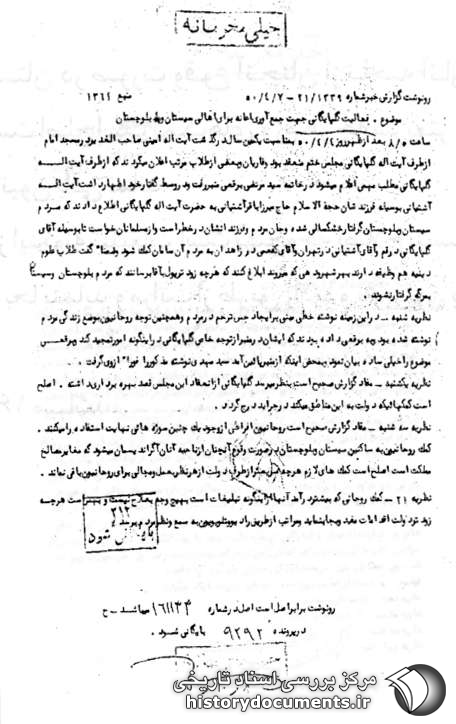 خیلی محرمانه
رونوشت گزارش خبر شماره ۲۱/۱۳۳۹ - ۵۰/۴/۷ منبع ۱۳۶۴
موضوع . فعالیت گلپایگانی جهت جمع آوری اعانه برای اهالی سیستان و بلوچستان
ساعت ۸/۵ بعد از ظهر روز ۵۰/۴/۴ بمناسبت یکمین سال درگذشت آیت اله امینی صاحب الغدیر در مسجد امام
از طرف آیت اله گلپایگانی مجلس ختم منعقد بود وقاریان وبعضی از طلاب مرتب اعلان میکردند که از طرف آیت الــه
گلپایگانی مطلب مهمی اعلام میشود در خاتمه سید مرتضی برقعی منبر رفت و در وسط گفتار خود اظهار داشت آیت الــه
آشتیانی بوسیله فرزند شان حجة الاسلام حاج میرزا باقر آشتیانی به حضرت آیت اله گلپایگانی اطلاع دادند که مردم
سیستان وبلوچستان گرفتار خشکسالی شده وجان مردم و فرزندانشان در خطر است و از مسلمانان خواست تا بوسیله آقای
گلپایگانی در قم و آقای آشتیانی در تهران و آقای کفعمی در زاهدان به مردم آن سامان کمک شود . وضمنا" گفت طلاب علوم
دینیه هم وظیفه دارند بهر شهرود هی که میروند ابلاغ کنند که هرچه زودتر پول به آقا برسانند که مردم بلوچستان وسیستان
بمرگ گرفتار نشوند .
نظریه شنبه - در این زمینه نوشته خطی مبنی بر ایجاد حس ترحم در مردم وهمچنین توجه روحانیون بوضع زندگی مردم
نوشته شده بود و به برقعی داده بودند که ایشان در منبر از توجه خاص گلپایگانی در اینگونه امور تمجید کند و برقعی
موضوع را خیلی ساده بیان نمود بمحض اینکه از منبر پائین آمد سید مهدی نوشته مذکور را فورا" از وی گرفت .
نظریه یکشنبه - مفاد گزارش صحیح است بنظر میرسد گلپایگانی از انعقاد این مجلس قصد بهره برداری داشته . اصلح
است کمکهائیکه دولت به این مناطق میکند در جراید درج گردد .
نظریه سه شنبه - مفاد گزارش صحیح است روحانیون افراطی از وجود یک چنین سوژه هائی نهایت استفاده را میکنند .
کمک روحانیون به ساکنین سیستان وبلوچستان در صورت وقوع آنچنان از ناحیه آنان آگراند یسمان میشود که مغایر مصالح
مملکت است اصلح است کمک های لازم هرچه سریعتر از طرف دولت از هر نظر بعمل ومجالی برای روحانیون باقی نماند .
نظریه ۲۱ - کمک روحانی که بیشتر درآمد آنها از اینگونه تبلیغات است بهیچ وجه بصلاح نیست و بهتر است هرچــه
زودتر دولت اقدامات مفید و بجا بنماید ومراتب از طریق رادیو وتلویزیون به سمع ونظر مردم برسد
۳۱۲
شود
رونوشت برابر اصل است اصل در شماره ۱۶۱۱۴۳ میباشد - ح
در پرونده ۹۲۹۲ بایگانی شود .
مرکز بررسی اسناد تاریخی
historydocuments.ir